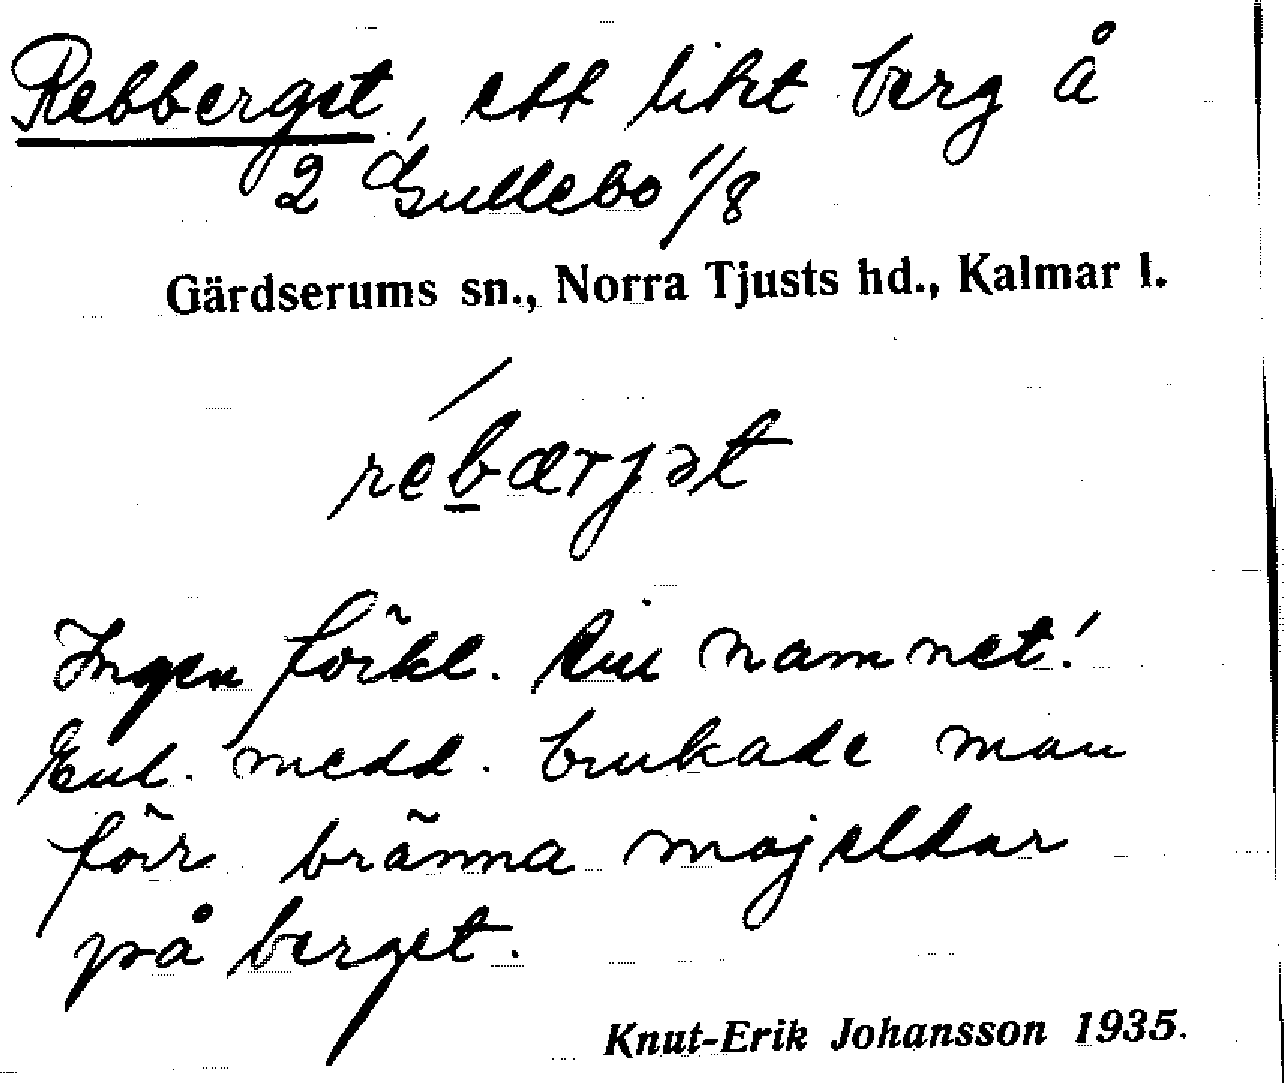 Rebberget, ett litet berg å
2 Gullebo 1/8
Gärdserums sn., Norra Tjusts hd., Kalmar l.
rébærjət
Ingen förkl. till namnet!
Enl. medd. brukade man
förr bränna majeldar
på berget.
Knut-Erik Johansson 1935.